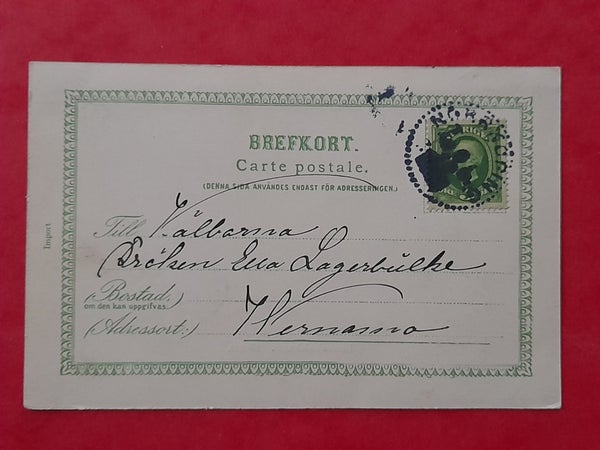 BREFKORT.
Carte postale.
(DENNA SIDA ANVÄNDES ENDAST FÖR ADRESSERINGEN.)
NORRKÖPING
SVERIGE
Till Välborna
Fröken Elsa Lagerbülke
(Bostad,
om den kan uppgifvas.)
(Adressort:) Wernamo
Import